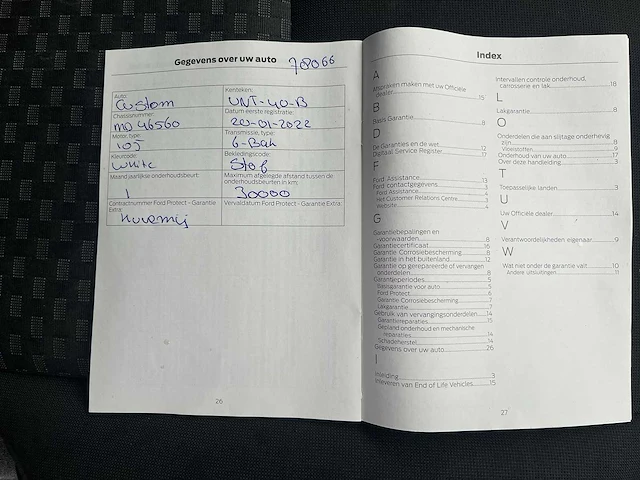 Gegevens over uw auto 78066
Auto: Kenteken:
Custom VNT-40-B
Chassisnummer: Datum eerste registratie:
MD46560 20-01-2022
Motor, type: Transmissie, type:
105 6-Bak
Kleurcode: Bekledingscode:
White Stof
Maand jaarlijkse onderhoudsbeurt: Maximum afgelegde afstand tussen de
onderhoudsbeurten in km:
1 30000
Contractnummer Ford Protect - Garantie Vervaldatum Ford Protect - Garantie Extra:
Extra:
26
Index
A
Afspraken maken met uw Officiële
dealer 15
B
Basis Garantie 8
D
De Garanties en de wet 12
Digitaal Service Register 17
F
Ford Assistance 13
Ford contactgegevens 3
Ford Assistance 4
Het Customer Relations Centre 3
Website 4
G
Garantiebepalingen en
voorwaarden 8
Garantiecertificaat 16
Garantie Corrosiebescherming 8
Garantie in het buitenland 12
Garantie op gerepareerde of vervangen
onderdelen 8
Garantieperiodes 5
Basisgarantie voor auto 5
Ford Protect 6
Garantie Corrosiebescherming 7
Lakgarantie 7
Gebruik van vervangingsonderdelen 14
Garantiereparaties 15
Gepland onderhoud en mechanische
reparaties 14
Schadeherstel 14
Gegevens over uw auto 26
I
Inleiding 3
Inleveren van End of Life Vehicles 15
Intervallen controle onderhoud,
carrosserie en lak 18
L
Lakgarantie 8
O
Onderdelen die aan slijtage onderhevig
zijn 8
Vloeistoffen 9
Onderhoud van uw auto 17
Over deze handleiding 3
T
Toepasselijke landen 3
U
Uw Officiële dealer 14
V
Verantwoordelijkheden eigenaar 9
W
Wat niet onder de garantie valt 10
Andere uitsluitingen 11
27